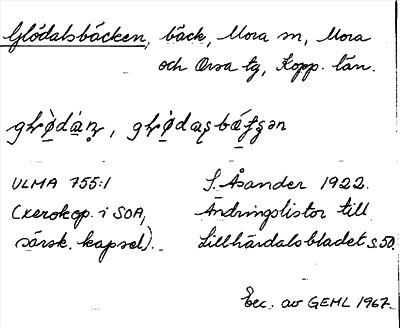 Glödalsbäcken, bäck, Mora sn, Mora
och Orsa tg, Kopp. län.
ULMA 755:1
(xerokop. i SOA,
särsk. kapsel).
S. Åsander 1922.
Ändringslistor till
Lillhärdalsbladet s.50.
Exc. av GEHL 1967.